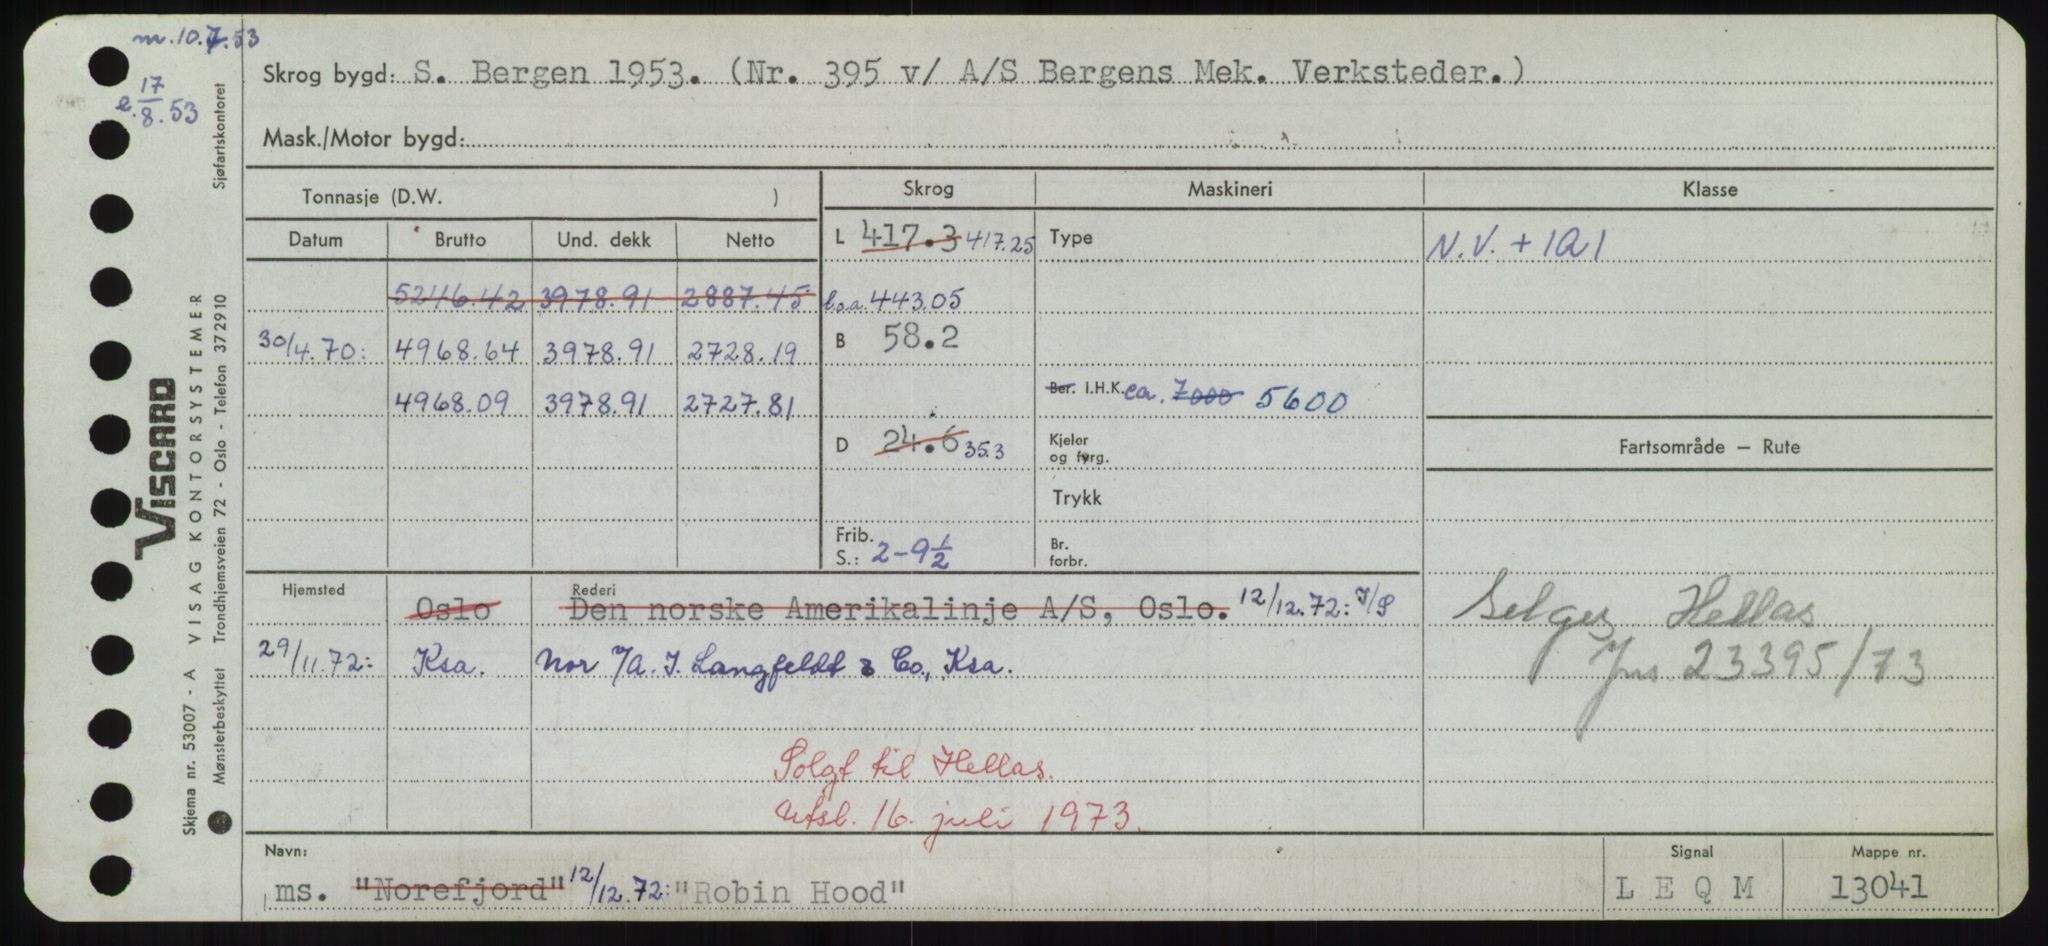 m. 10.7.53
e. 17/8.53
Skrog bygd: S. Bergen 1953. (Nr. 395 v/ A/S Bergens Mek. Verksteder.)
Mask./Motor bygd:
Tonnasje (D.W. )
Skrog
Maskineri
Klasse
Datum
Brutto
Und. dekk
Netto
L 417.3 417.25
Type
N.V. + 1A1
5246.42 3978.91 2887.45
l.o.a. 443.05
30/4.70: 4968.64 3978.91 2728.19
B 58.2
4968.09 3978.91 2727.81
Ber. I.H.K. ca. 7000 5600
D 24.6 35.3
Kjeler
og fyrg.
Fartsområde — Rute
Trykk
Frib.
S.: 2-9½
Br.
forbr.
Hjemsted
Rederi
Oslo
Den norske Amerikalinje A/S, Oslo. 12/12.72: I/S
29/11.72: Ksa. Nor v/A. I. Langfeldt & Co., Ksa.
Selges Hellas
Jnr. 23395/73
Solgt til Hellas.
Utsl. 16. juli 1973.
Navn:
ms. "Norefjord" 12/12.72: "Robin Hood"
Signal
L E Q M
Mappe nr.
13041
VISCARD
Skjema nr. 53007 - A VISAG KONTORSYSTEMER
Mønsterbeskyttet Trondhjemsveien 72 - Oslo - Telefon 372910
Sjøfartskontoret